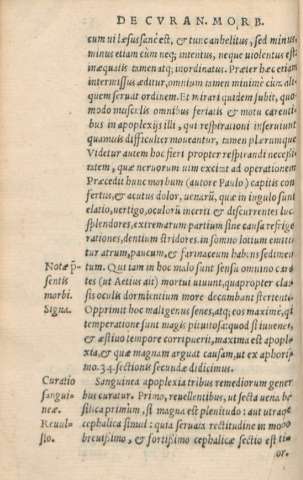 DE CVRAN. MORB.
cum ui læsus sanè est, & tunc anhelitus, sed minus,
minus etiam cùm neq; intentus, neque uiolentus est:
inæqualis tamen atq; inordinatus. Præter hæc etiam
intermissus æditur, omnium tamen minimè cùm ali-
quem seruat ordinem. Et mirari quidem subit, quo-
modo musculis omnibus feriatis & motu carenti-
bus in apoplexijs illi, qui respirationi inseruiunt
quamuis difficulter moueantur, tamen plærumque
Videtur autem hoc fieri propter respirandi necessi-
tatem, quæ neruorum uim excitat ad operationem
Præcedit hunc morbum (autore Paulo) capitis con
fertus, & acutus dolor, uenarũ, quæ in iugulo sunt
elatio, uertigo, oculorũ incerti & discurrentes luc
splendores, extremarum partium sine causa refrige
rationes, dentium stridores. in somno lotium emitti
tur atrum, paucum, & farinaceum habens sedimen
Notæ p̃
sentis
morbi.
Signa.
tum. Qui tam in hoc malo sunt sensu omnino caren
tes (ut Aetius ait) mortui uiuunt, quapropter clau-
sis oculis dormientium more decumbant stertente
Opprimit hoc malignum senes, atq; eos maximè, qui
temperature sunt magis pituitosæ: quod si iuuenes,
& æstiuo tempore corripuerit, maxima est apople
xia, & quæ magnam arguat causam, ut ex aphoris
mo. 34. sectionis secundæ didicimus.
Curatio
sangui-
neæ.
Reuul-
sio.
Sanguinea apoplexia tribus remediorum gener
bus curatur. Primo, reuellentibus, ut secta uena ba
silica primùm, si magna est plenitudo: aut utraque
cephalica simul: quia seruaix rectitudine in modo
breuissimo, & fortissimo cephalicæ sectio est ti-
or.